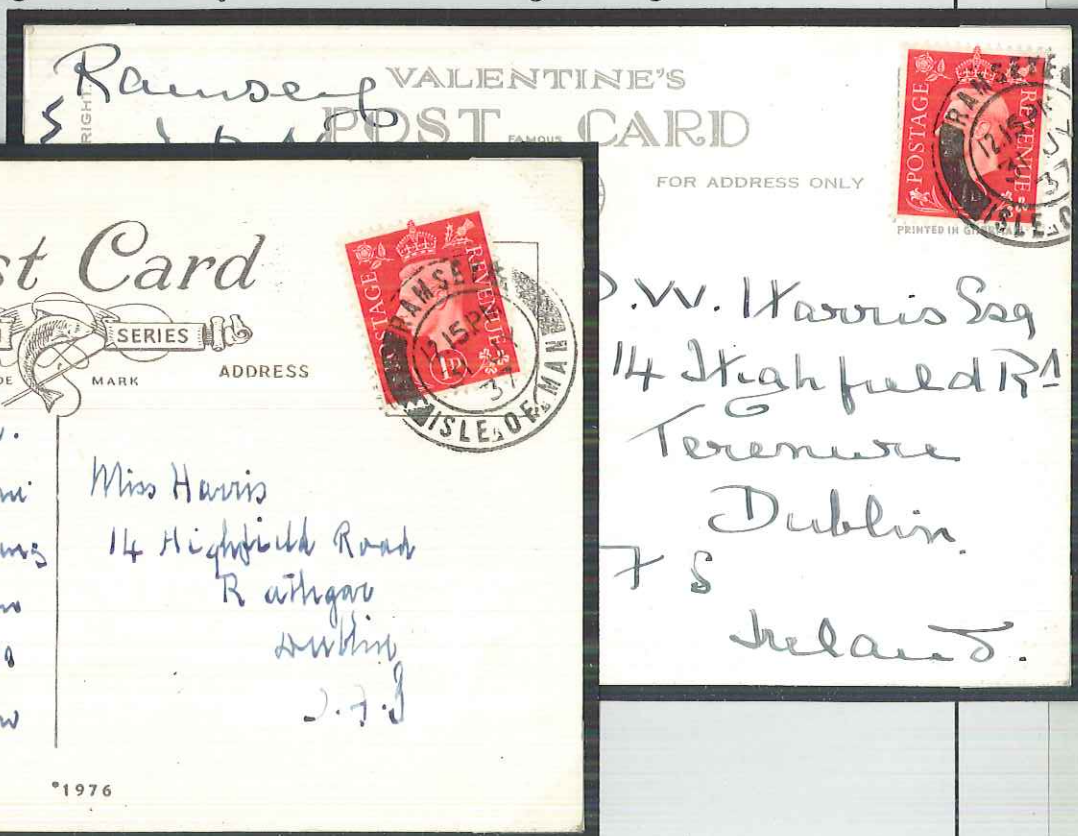 Ramsey
VALENTINE'S
POST CARD
FAMOUS
FOR ADDRESS ONLY
POSTAGE REVENUE
RAMSEY
12.15PM
31 JY
37
ISLE O
PRINTED IN G
.W. Harris Esq
14 Highfield Rd
Terenure
Dublin.
F S
Ireland.
st Card
SERIES
DE MARK ADDRESS
POSTAGE REVENUE
1D
RAMSEY
12.15PM
31 JY
37
ISLE OF MAN
Miss Harris
14 Highfield Road
Rathgar
Dublin
I.F.S
°1976